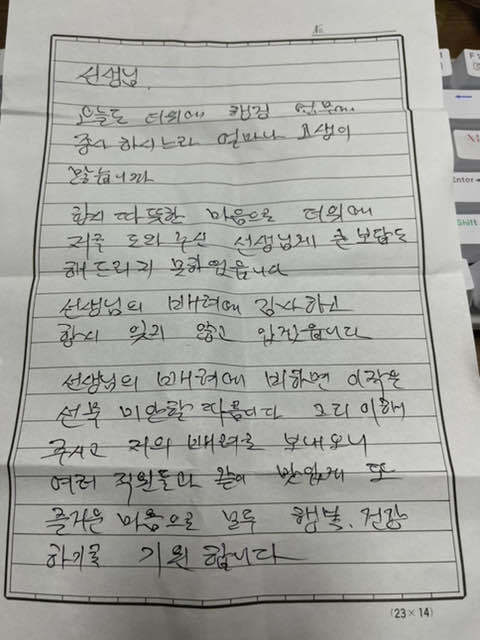 No
선생님,
오늘도 더위에 현장 업무에
종사 하시는라 얼마나 고생이
많습니까
항시 따뜻한 마음으로 더위에
저를 도와 주신 선생님께 큰 보답도
해드리지 못하였읍니다
선생님의 배려에 감사하고
항시 잊지 않고 있겠읍니다
선생님의 배려에 비하면 이작은
선물 미안할 따름니다 그리 이해
주시고 저의 배려를 보내오니
여러 직원들과 같이 맛있게 또
즐거운 마음으로 모두 행복, 건강
하기를 기원 합니다
(23×14)
Enter
Shift